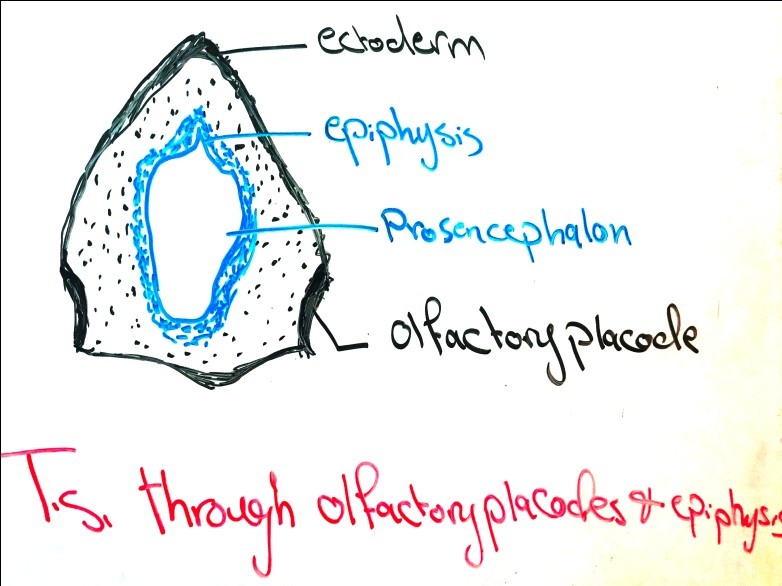 ectoderm
epiphysis
Prosencephalon
olfactory placode
T.S. through olfactory placodes & epiphysis